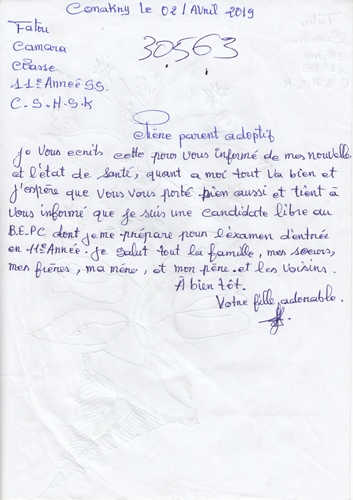 Conakry le 02/Avril 2019
Fatou
Camara
Classe
11e Année S.S.
C.S.H.S.K
30563
Chère parent adoptif
Je vous ecrits cette pour vous informé de mes nouvelle
et l'état de santé, quant a moi tout va bien et
j'espère que vous vous porté bien aussi et tient à
vous informé que je suis une candidate libre au
B.E.PC dont je me prépare pour l'examen d'entrée
en 11e Année. je salut tout la famille, mes soeurs,
mes frères, ma mère, et mon père. et les voisins.
À bien tôt.
Votre fille adorable.